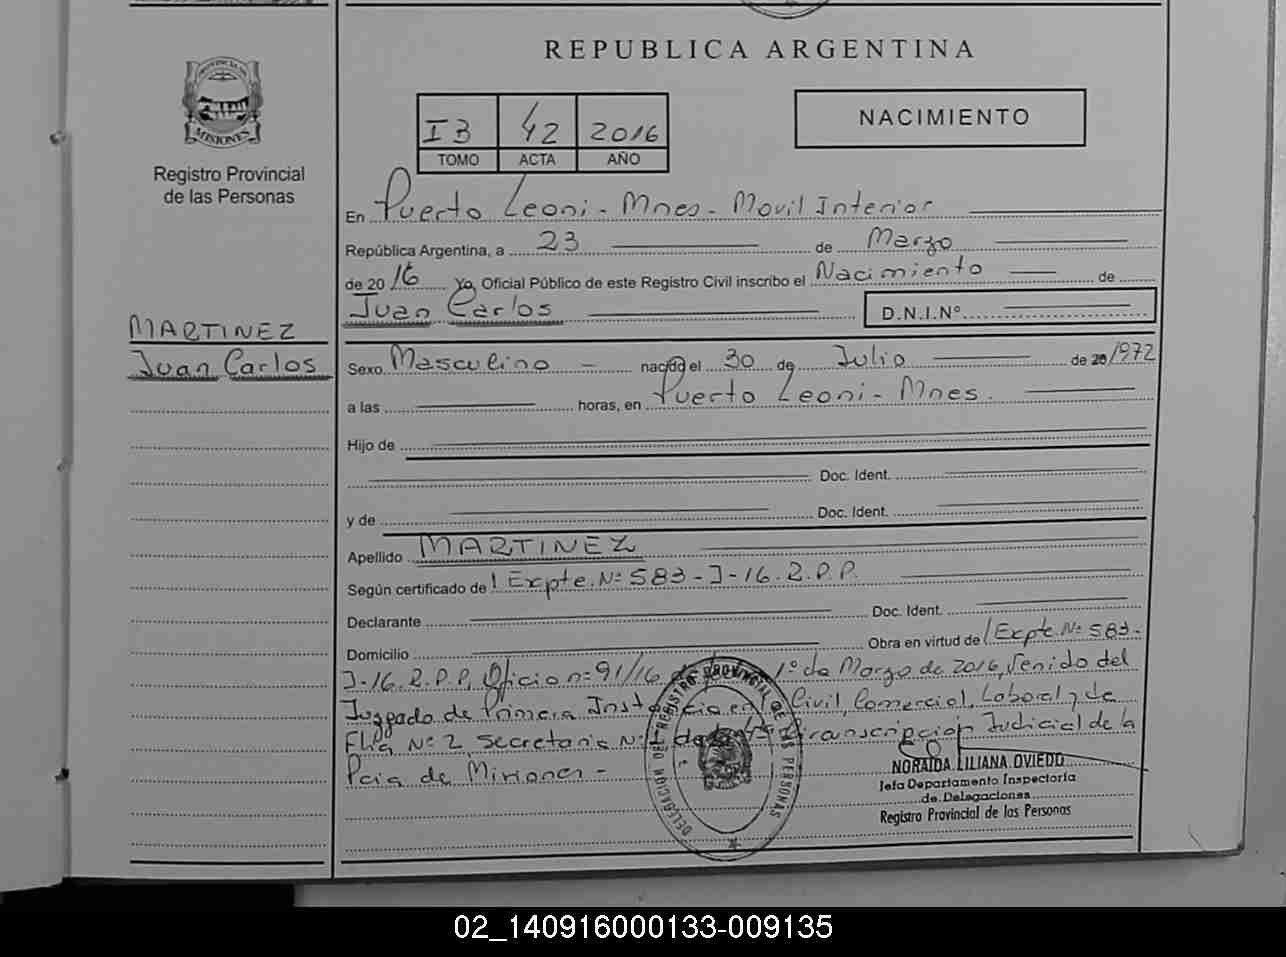 REPUBLICA ARGENTINA
PROVINCIA DE
MISIONES
Registro Provincial
de las Personas
I B 42 2016
TOMO ACTA AÑO
NACIMIENTO
En Puerto Leoni - Mnes - Movil Interior
República Argentina, a 23 de Marzo
de 2016 Yo, Oficial Público de este Registro Civil inscribo el Nacimiento de
Juan Carlos D.N.I.Nº
MARTINEZ
Juan Carlos
Sexo Masculino - nacido el 30 de Julio de 20/972
a las horas, en Puerto Leoni - Mnes.
Hijo de
Doc. Ident.
y de Doc. Ident.
Apellido MARTINEZ
Según certificado de Expte. Nº 583-J-16. R.P.P.
Declarante Doc. Ident.
Domicilio Obra en virtud de Expte Nº 583-
J-16. R.P.P, Oficio nº 91/16 1º de Marzo de 2016, Venido del
Juzgado de Primera Civil, Comercial, Laboral y de
Flia Nº 2, Secretaria Circunscripción Judicial de la
Pcia de Misiones -
DELEGACION DEL REGISTRO PROVINCIAL DE LAS PERSONAS
NORAIDA LILIANA OVIEDO
Jefa Departamento Inspectoria
de Delegaciones
Registro Provincial de las Personas
02_140916000133-009135